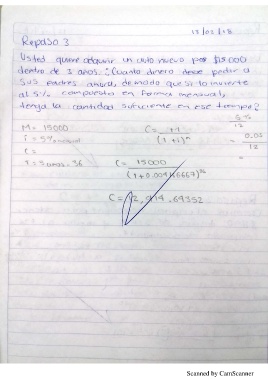 Repaso 3
Usted quiere adquirir un auto nuevo por $15000
dentro de 3 años. ¿Cuanto dinero debe pedir a
sus padres ahora, de modo que si lo invierte
al 5% compuesto en forma mensual,
tenga la cantidad suficiente en ese tiempo?
M= 15000
i = 5%
t = 3 años. 36
C = M
(1+i)ⁿ
12
C = 15000
(1+0.00416667)³⁶
C = 12,914.64352
Scanned by CamScanner